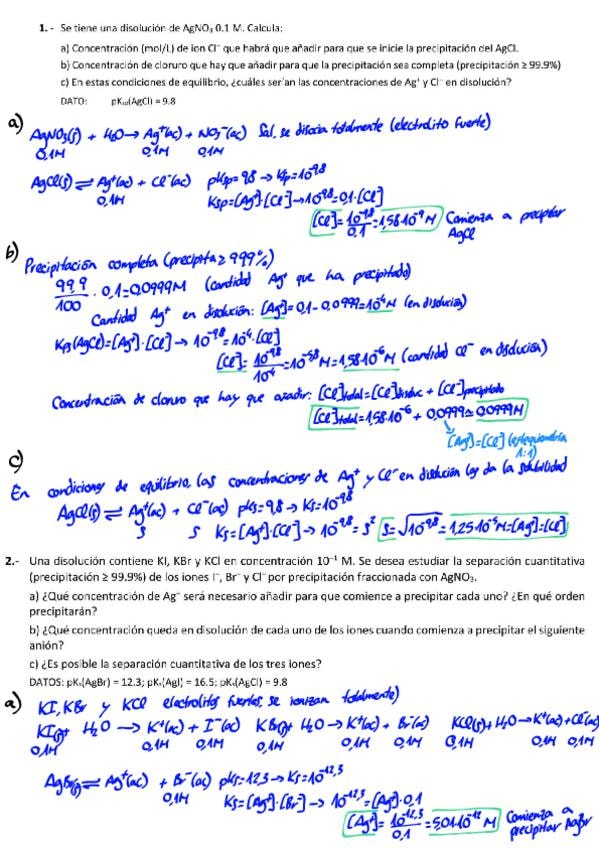 1. - Se tiene una disolución de AgNO₃ 0.1 M. Calcula:
a) Concentración (mol/L) de ion Cl⁻ que habrá que añadir para que se inicie la precipitación del AgCl.
b) Concentración de cloruro que hay que añadir para que la precipitación sea completa (precipitación ≥ 99.9%)
c) En estas condiciones de equilibrio, ¿cuáles serían las concentraciones de Ag⁺ y Cl⁻ en disolución?
DATO: pKₛₚ(AgCl) = 9.8
a) AgNO₃(s) + H₂O → Ag⁺(ac) + NO₃⁻(ac) Sal, se disocia totalmente (electrolito fuerte)
0,1M 0,1M 0,1M
AgCl(s) ⇌ Ag⁺(ac) + Cl⁻(ac) pKsp = 9,8 → Ksp = 10⁻⁹·⁸
0,1M Ksp = [Ag⁺]·[Cl⁻] → 10⁻⁹·⁸ = 0,1·[Cl⁻]
[Cl⁻] = 10⁻⁹·⁸ / 0,1 = 1,58·10⁻⁹ M Comienza a precipitar AgCl
b) Precipitación completa (precipita ≥ 99,9%)
99,9 / 100 · 0,1 = 0,0999M (cantidad Ag⁺ que ha precipitado)
Cantidad Ag⁺ en disolución: [Ag⁺] = 0,1 - 0,0999 = 10⁻⁴ M (en disolución)
Kps(AgCl) = [Ag⁺]·[Cl⁻] → 10⁻⁹·⁸ = 10⁻⁴·[Cl⁻]
[Cl⁻] = 10⁻⁹·⁸ / 10⁻⁴ = 10⁻⁵·⁸ M = 1,58·10⁻⁶ M (cantidad Cl⁻ en disolución)
Concentración de cloruro que hay que añadir: [Cl⁻]total = [Cl⁻]disoluc + [Cl⁻]precipitado
[Cl⁻]total = 1,58·10⁻⁶ + 0,0999 ≃ 0,0999M
[Ag⁺] = [Cl⁻] (estequiometría 1:1)
c) En condiciones de equilibrio, las concentraciones de Ag⁺ y Cl⁻ en disolución los da la solubilidad
AgCl(s) ⇌ Ag⁺(ac) + Cl⁻(ac) pKs = 9,8 → Ks = 10⁻⁹·⁸
s s Ks = [Ag⁺]·[Cl⁻] → 10⁻⁹·⁸ = s² s = √10⁻⁹·⁸ = 1,25·10⁻⁵ M = [Ag⁺] = [Cl⁻]
2.- Una disolución contiene KI, KBr y KCl en concentración 10⁻¹ M. Se desea estudiar la separación cuantitativa
(precipitación ≥ 99.9%) de los iones I⁻, Br⁻ y Cl⁻ por precipitación fraccionada con AgNO₃.
a) ¿Qué concentración de Ag⁺ será necesario añadir para que comience a precipitar cada uno? ¿En qué orden
precipitarán?
b) ¿Qué concentración queda en disolución de cada uno de los iones cuando comienza a precipitar el siguiente
anión?
c) ¿Es posible la separación cuantitativa de los tres iones?
DATOS: pKₛ(AgBr) = 12.3; pKₛ(AgI) = 16.5; pKₛ(AgCl) = 9.8
a) KI, KBr y KCl electrolitos fuertes, se ionizan totalmente)
KI(s) + H₂O → K⁺(ac) + I⁻(ac) KBr(s) + H₂O → K⁺(ac) + Br⁻(ac) KCl(s) + H₂O → K⁺(ac) + Cl⁻(ac)
0,1M 0,1M 0,1M 0,1M 0,1M 0,1M 0,1M 0,1M 0,1M
AgBr(s) ⇌ Ag⁺(ac) + Br⁻(ac) pKs = 12,3 → Ks = 10⁻¹²·³
0,1M Ks = [Ag⁺]·[Br⁻] → 10⁻¹²·³ = [Ag⁺]·0,1
[Ag⁺] = 10⁻¹²·³ / 0,1 = 5,01·10⁻¹² M Comienza a precipitar AgBr